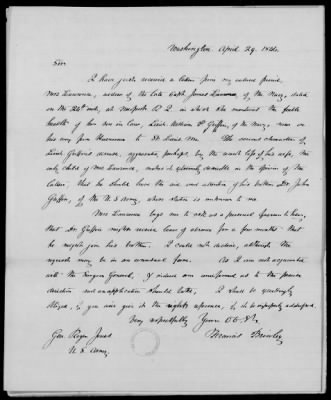 Washington April 29. 1842.
Sir
I have just received a letter from my valued friend
Mrs Lawrence, widow of the late Capt James Lawrence, of the Navy, dated
on the 24th inst, at Newport R. I. in which she mentions the feeble
health of her son in law, Lieut William P. Griffin, of the Navy, now on
his way from Havanna to St Louis Mo. The serious character of
Lieut Griffin's disease, aggravated, perhaps, by the recent loss of his wife, the
only child of Mrs Lawrence, makes it extremely desirable in the opinion of the
latter, that he should have the aid and attention of his brother Dr. John
Griffin, of the U S Army, whose station is unknown to me.
Mrs Lawrence begs me to ask as a personal favour to her,
that Dr. Griffin might receive leave of absence for a few months that
he might join his brother. I could not decline, although the
request may be in an unusual form. As I am not acquainted
with the Surgeon General, I
direction and an application should take, I shall be exceedingly
obliged, if you will give it the right reference, if
Very respectfully Your Ob. St.
Francis Brinley
Gen. Roger Jones
U. S. Army.